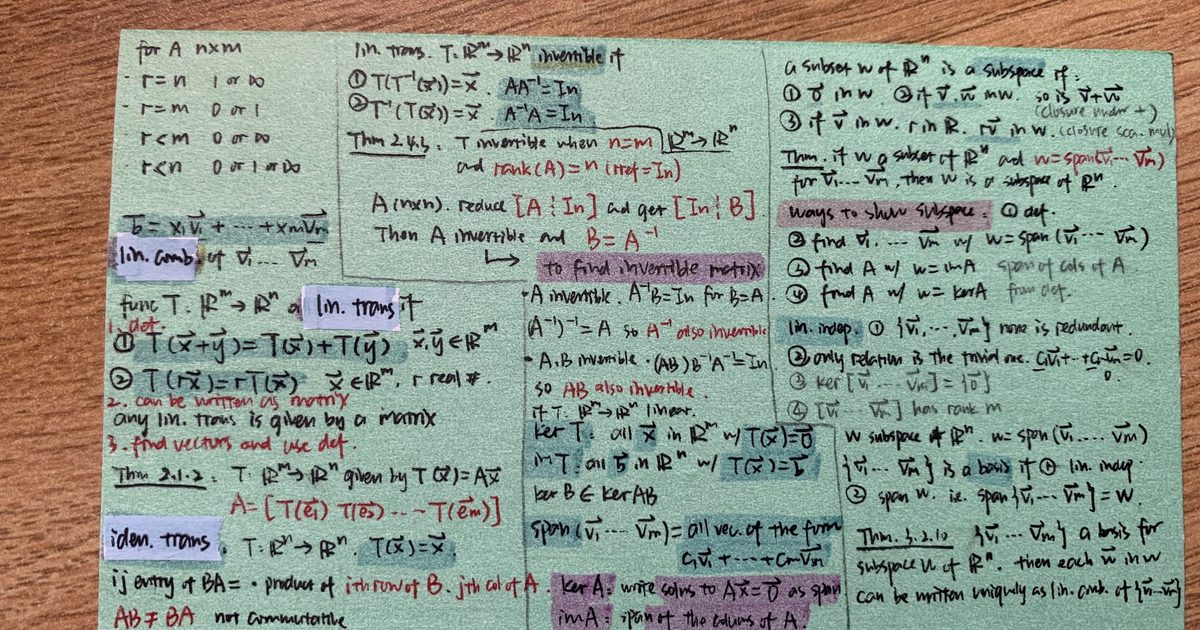 for A n×m
· r=n 1 or ∞
· r=m 0 or 1
· r<m 0 or ∞
· r<n 0 or 1 or ∞
b⃗ = x₁v⃗₁ + ··· + xₘv⃗ₘ
lin. comb of v⃗₁ ... v⃗ₘ
func T: ℝᵐ→ℝⁿ a lin. trans if
1. def.
① T(x⃗+y⃗)=T(x⃗)+T(y⃗) x⃗,y⃗∈ℝᵐ
② T(rx⃗)=rT(x⃗) x⃗∈ℝᵐ, r real #.
2. can be written as matrix
any lin. trans is given by a matrix
3. find vectors and use def.
Thm 2.1.2: T: ℝᵐ→ℝⁿ given by T(x⃗)=Ax⃗
A=[T(e⃗₁) T(e⃗₂) ··· T(e⃗ₘ)]
iden. trans. T: ℝⁿ→ℝⁿ. T(x⃗)=x⃗
ij entry of BA = · product of ith row of B. jth col of A.
AB≠BA not commutative
lin. trans. T: ℝᵐ→ℝⁿ invertible if
① T(T⁻¹(x⃗))=x⃗. AA⁻¹=In
② T⁻¹(T(x⃗))=x⃗. A⁻¹A=In
Thm 2.4.: T invertible when n=m ℝᵐ→ℝⁿ
and rank(A)=n (rref=In)
A(n×n). reduce [A ¦ In] and get [In ¦ B].
Then A invertible and B=A⁻¹
↳ to find invertible matrix
· A invertible. A⁻¹B=In for B=A.
(A⁻¹)⁻¹=A so A⁻¹ also invertible
· A,B invertible · (AB)B⁻¹A⁻¹=In
so AB also invertible.
if T: ℝᵐ→ℝⁿ linear.
ker T: all x⃗ in ℝᵐ w/ T(x⃗)=0⃗
im T: all b⃗ in ℝⁿ w/ T(x⃗)=b⃗
ker B ∈ ker AB
span(v⃗₁ ··· v⃗ₘ) = all vec. of the form
c₁v⃗₁+····+cₘv⃗ₘ
ker A: write solns to Ax⃗=0⃗ as span
im A: span of the colums of A.
a subset W of ℝⁿ is a subspace if:
① 0⃗ in W. ② if v⃗, w⃗ in W. so is v⃗+w⃗
(closure under +)
③ if v⃗ in W. r in ℝ. rv⃗ in W. (closure sca. mul)
Thm. if W a subset of ℝⁿ and W=span(v⃗₁ ··· v⃗ₘ)
for v⃗₁ ... v⃗ₘ, then W is a subspace of ℝⁿ.
ways to show subspace: ① def.
② find v⃗₁. ... v⃗ₘ w/ W=span(v⃗₁ ··· v⃗ₘ)
③ find A w/ W=imA span of cols of A
④ find A w/ W=kerA from def.
lin. indep. ① {v⃗₁, ··· v⃗ₘ} none is redundant.
② only relation is the trivial one. c₁v⃗₁+···+cₘv⃗ₘ=0.
0
③ ker[v⃗₁ ··· v⃗ₘ]={0⃗}
④ [v⃗₁ ··· v⃗ₘ] has rank m
W subspace of ℝⁿ. W=span(v⃗₁ .... v⃗ₘ)
{v⃗₁ ··· v⃗ₘ} is a basis if ① lin. indep.
② span W. i.e. span{v⃗₁ ··· v⃗ₘ}=W.
Thm. 3.2.10 {v⃗₁ ··· v⃗ₘ} a basis for
subspace W of ℝⁿ. then each w⃗ in W
can be written uniquely as lin. comb. of {v⃗₁ ··· v⃗ₘ}